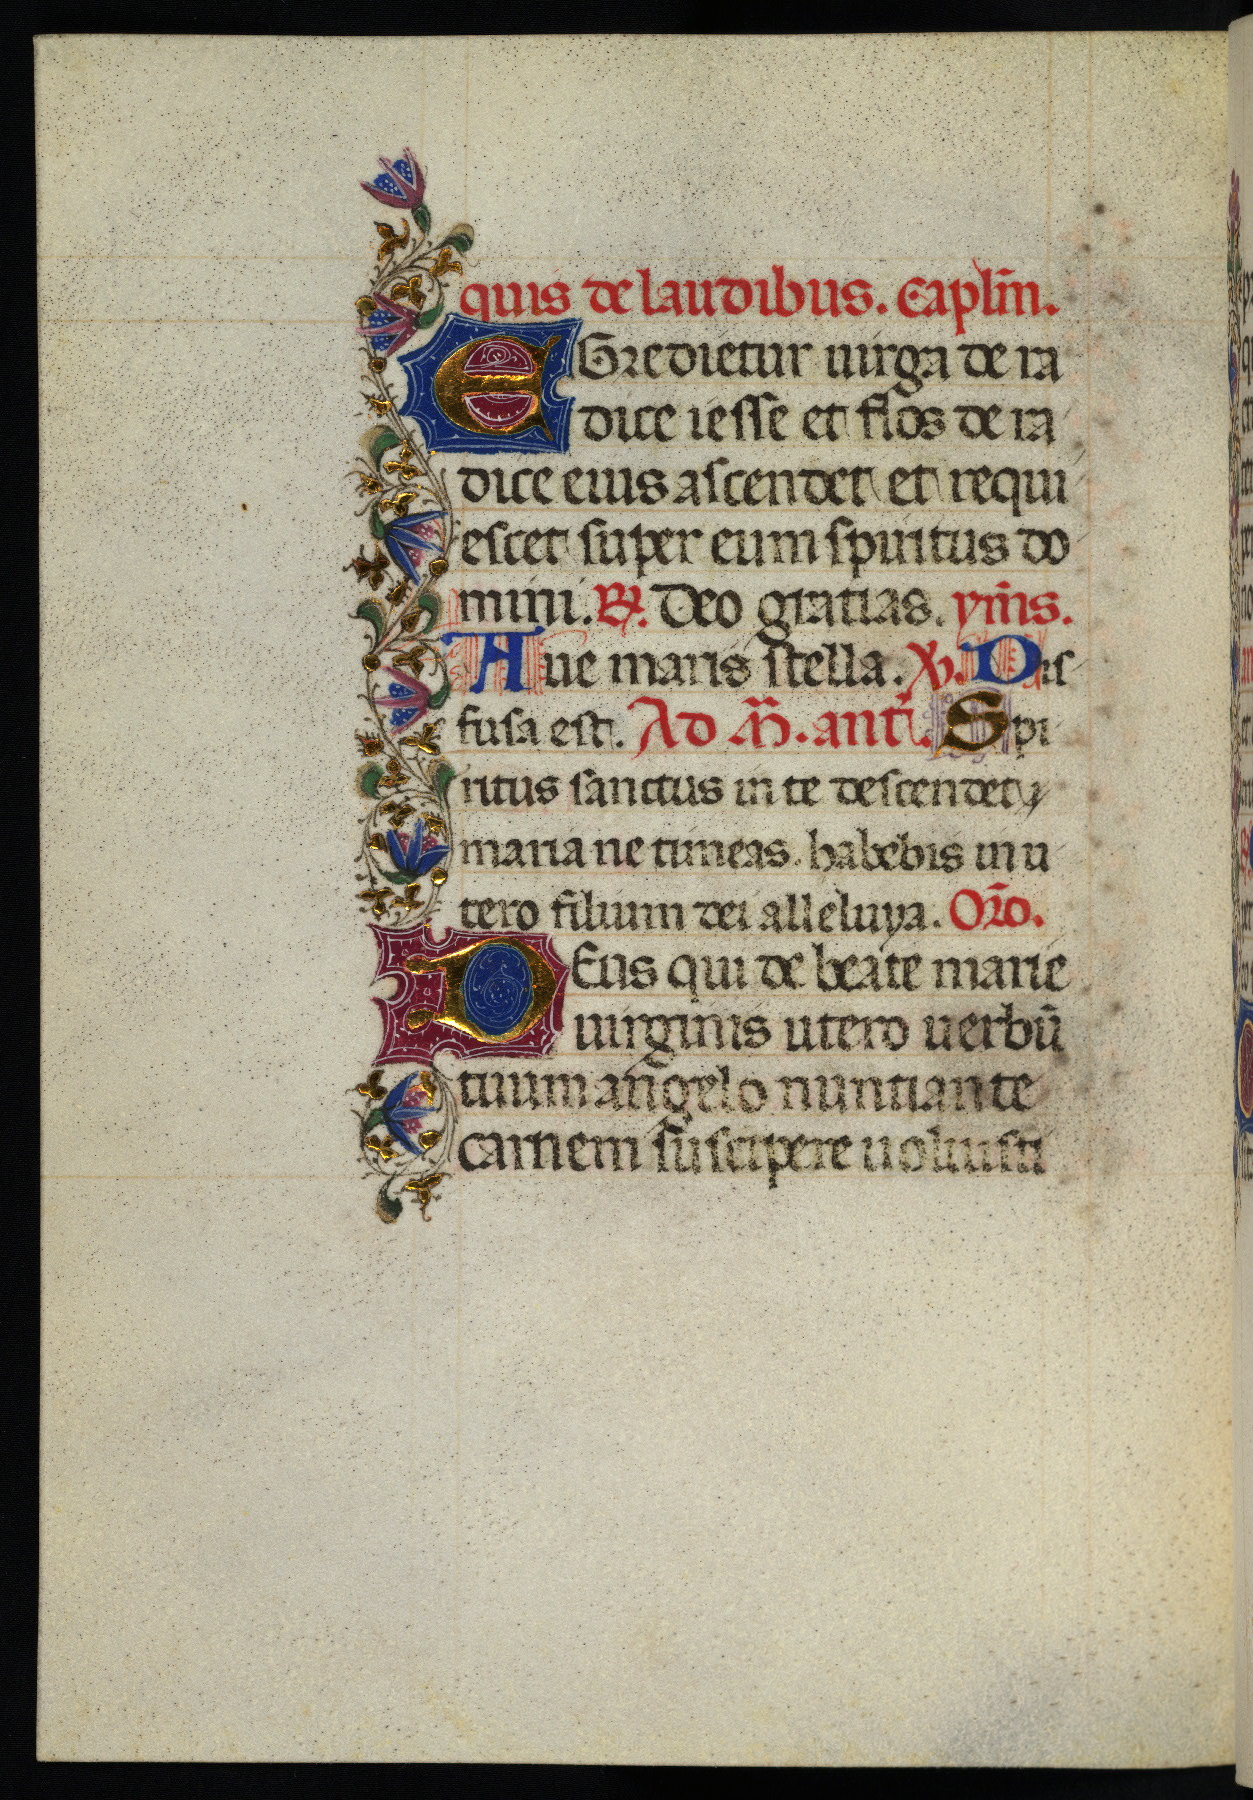 quis de laudibus. Caplm̄.
EGredietur uirga de ra
dice iesse et flos de ra
dice eius ascendet et requi
escet super eum spiritus do
mini. ℟. Deo gratias. ym̄s.
Aue maris stella. ℣. Dif
fusa est. Ad M̄. ant̄. Spi
ritus sanctus in te descendet
maria ne timeas. habebis in u
tero filium dei alleluya. Or̄o.
DEus qui de beate marie
uirginis utero uerbū
tuum angelo nuntiante
carnem suscipere uoluisti